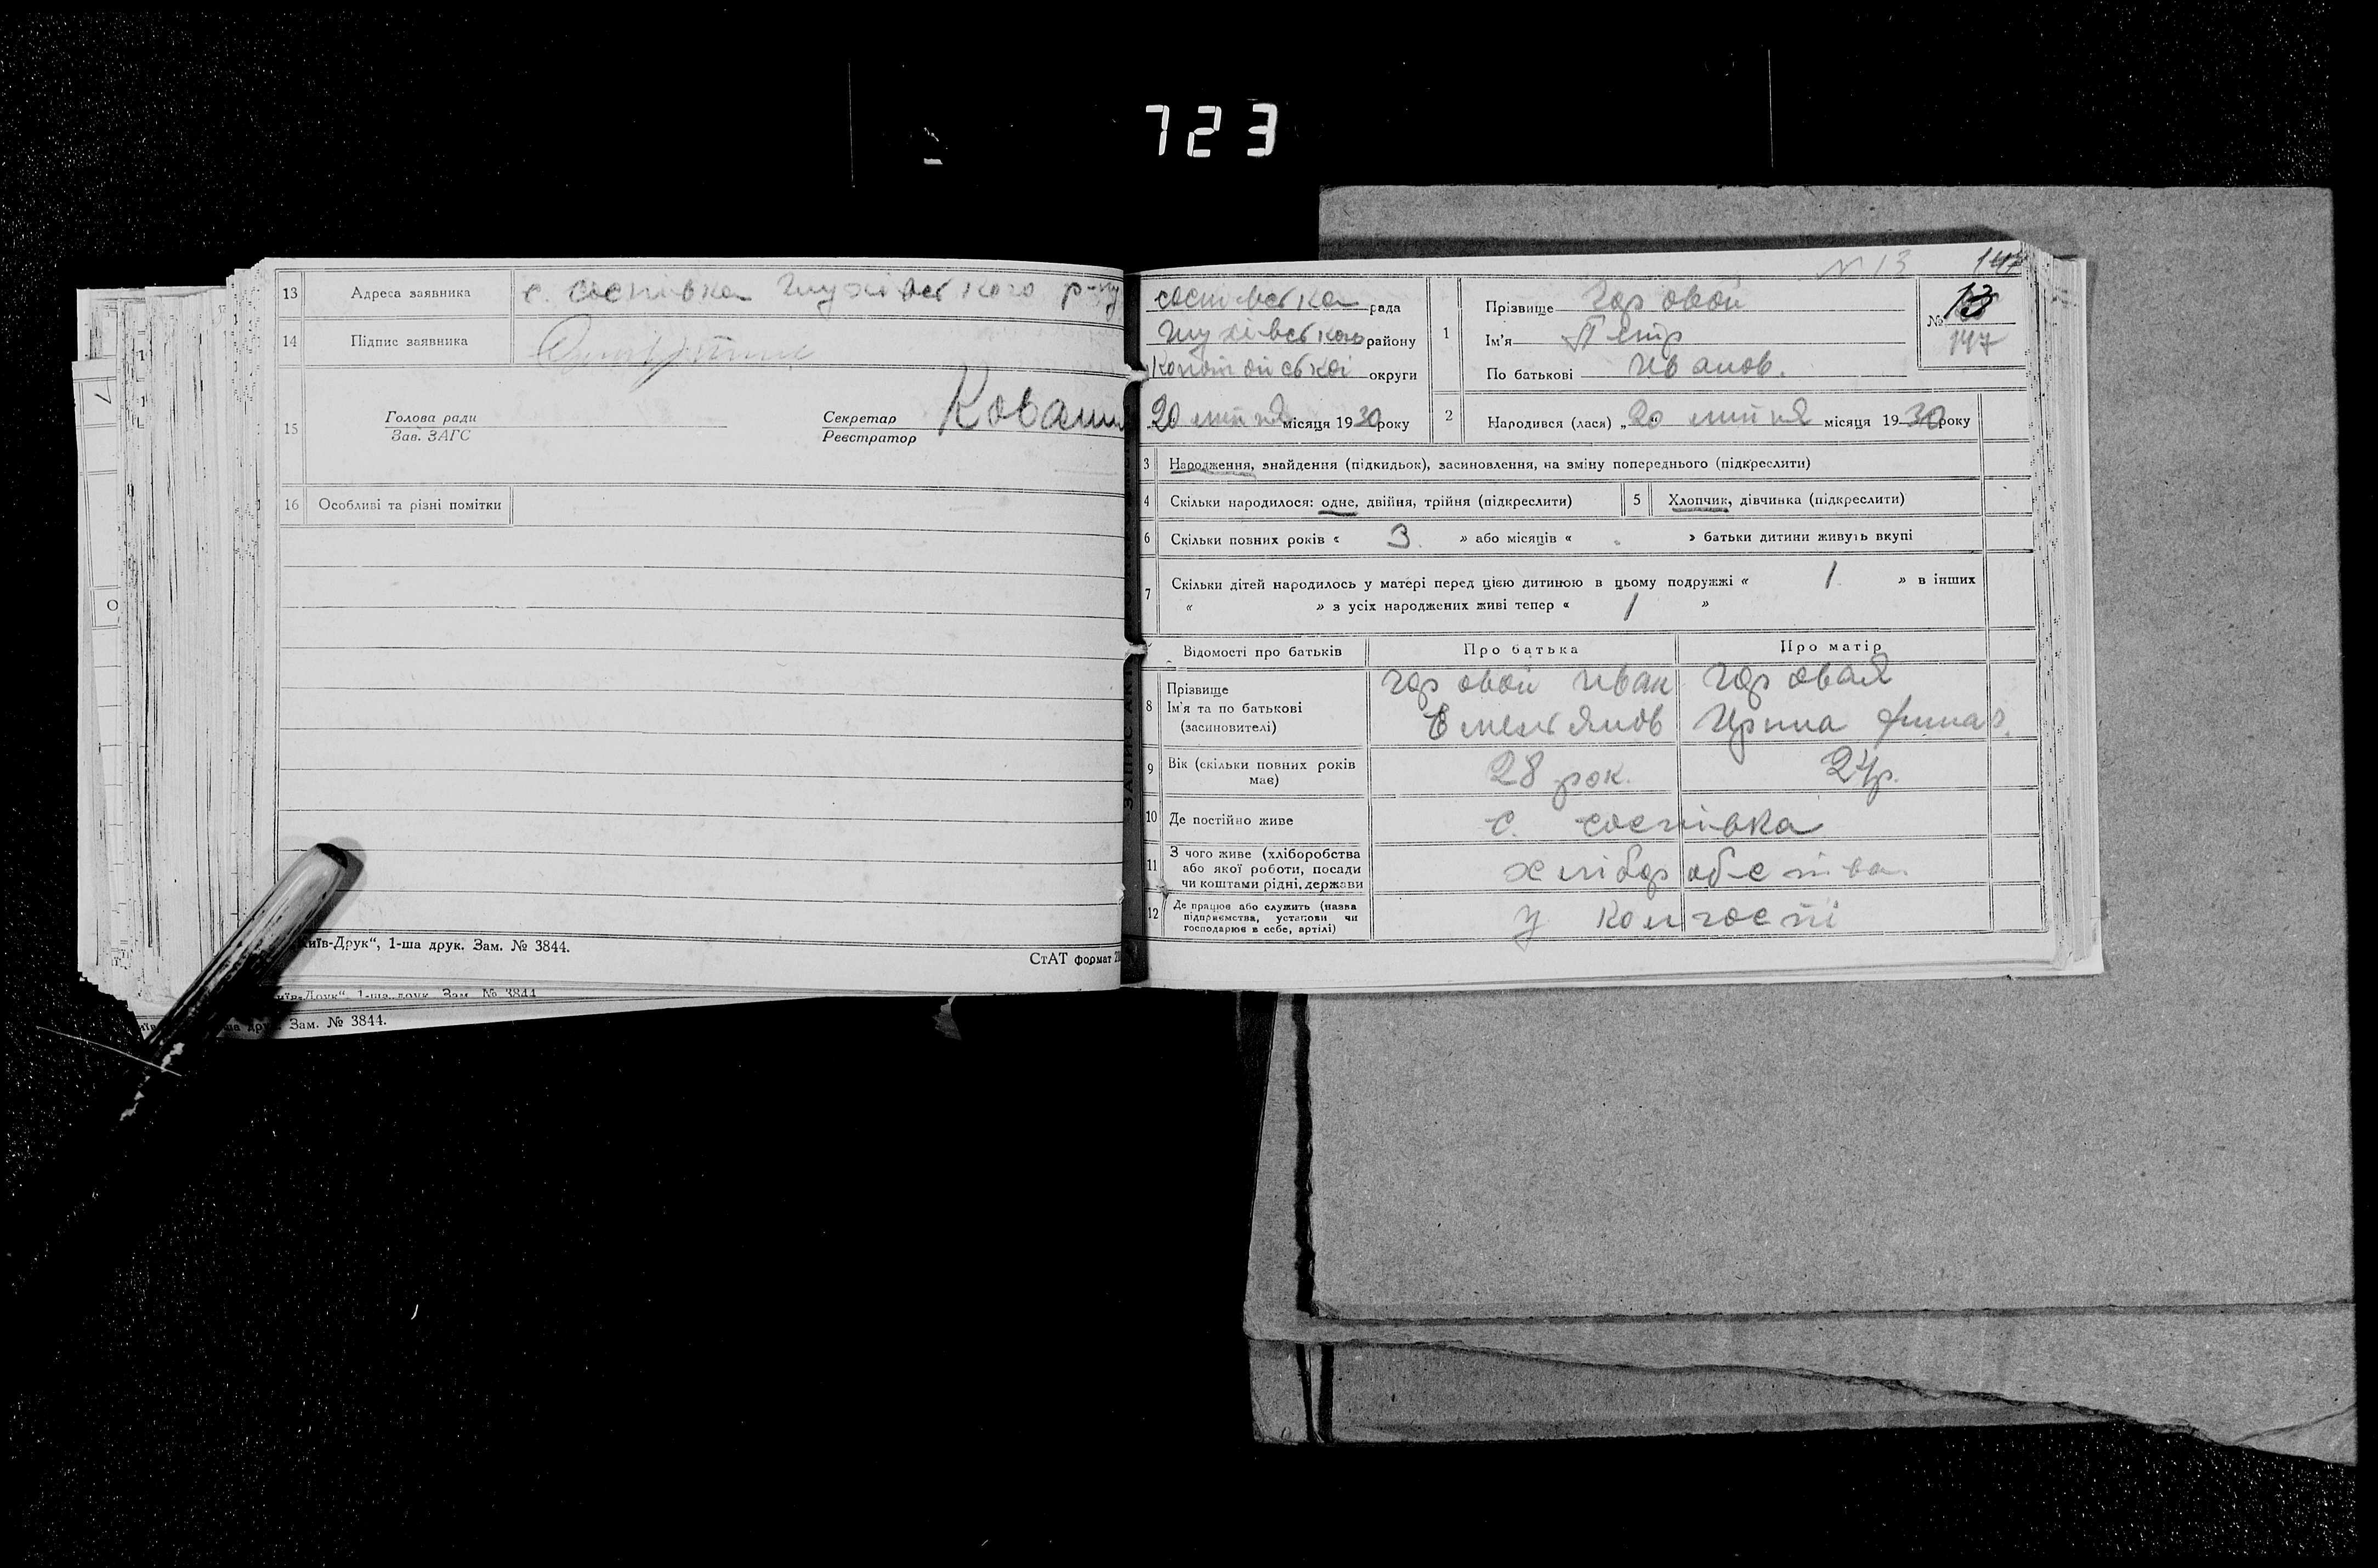 723
13 Адреса заявника с. Соснівка Глухівського р-ну
14 Підпис заявника
15 Голова ради
Зав. ЗАГС
Секретар
Реєстратор
16 Особливі та різні помітки
„Київ-Друк“, 1-ша друк. Зам. № 3844.
СтАТ формат
1-ша друк. Зам. № 3844
Зам. № 3844.
ЗАПИС АК
N 13
147
рада
Глухівського району
Конотопської округи
20 липня місяця 1930 року
1 Прізвище Горовой
Ім'я Петр
По батькові Иванов.
№ 13
147
2 Народився (лася) „20 липня місяця 1930 року
3 Народження, знайдення (підкидьок), засиновлення, на зміну попереднього (підкреслити)
4 Скільки народилося: одне, двійня, трійня (підкреслити)
5 Хлопчик, дівчинка (підкреслити)
6 Скільки повних років « 3 » або місяців « - » батьки дитини живуть вкупі
7 Скільки дітей народилось у матері перед цією дитиною в цьому подружжі « 1 » в інших
« » з усіх народжених живі тепер « 1 »
Відомості про батьків Про батька Про матір
8 Прізвище
Ім'я та по батькові
(засиновителі)
Горовой Иван
Емельянов
Горовая
Ирина
9 Вік (скільки повних років
має)
28 рок.
10 Де постійно живе с. Соснівка
11 З чого живе (хліборобства
або якої роботи, посади
чи коштами рідні, держави
хліборобства
12 Де працює або служить (назва
підприємства, установи чи
господарює в себе, артілі)
у колгоспі